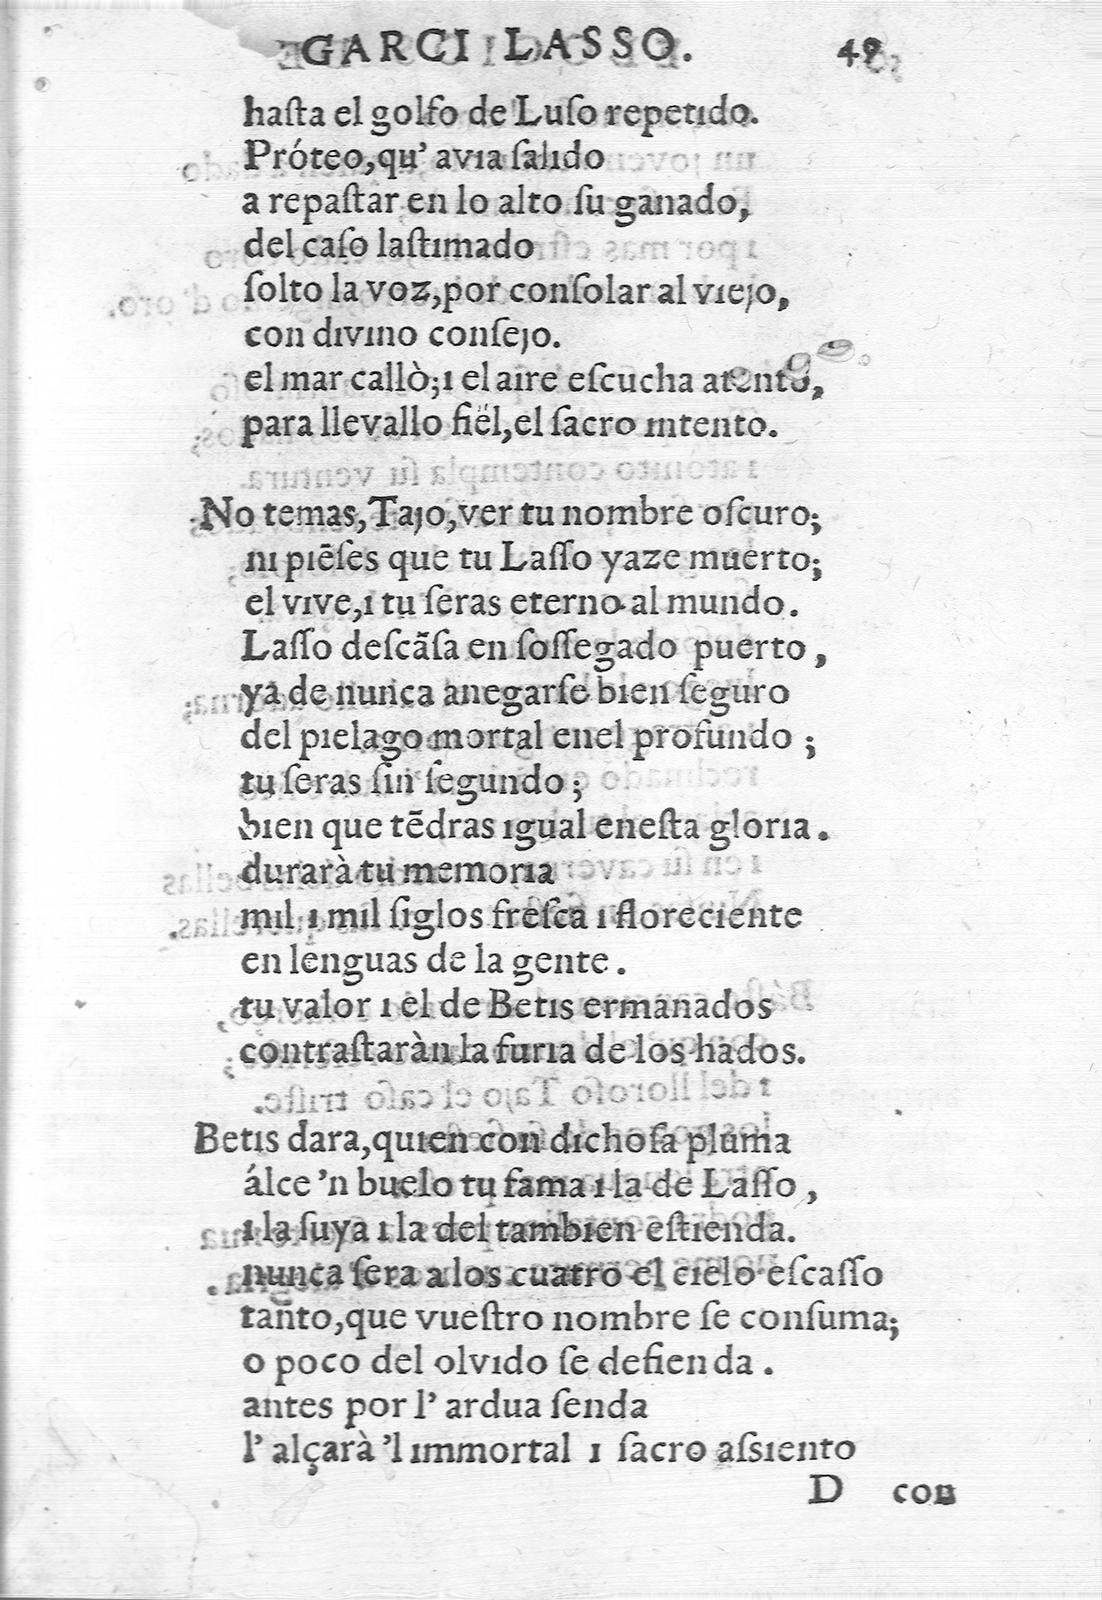 GARCI LASSO. 49
haſta el golfo de Luſo repetido.
Próteo,qu' avıa ſalıdo
a repaſtar en lo alto ſu ganado,
del caſo laſtımado
ſolto la voz,por conſolar al vıeȷo,
con dıvıno conſeȷo.
el mar callò;ı el aıre eſcucha atento,
para llevallo fiël,el ſacro ıntento.
No temas,Taȷo,ver tu nombre oſcuro;
nı pıēſes que tu Laſſo yaze muerto;
el vıve,ı tu ſeras eterno al mundo.
Laſſo deſcãſa en ſoſſegado puerto,
ya de nunca anegarſe bıen ſeguro
del pıelago mortal enel profundo;
tu ſeras ſın ſegundo;
bıen que tēdras ıgual eneſta glorıa.
durarà tu memorıa
mıl ı mıl ſiglos freſca ı florecıente
en lenguas de la gente.
tu valor ı el de Betıs ermanados
contraſtaràn la furıa de los hados.
Betıs dara,quıen con dıchoſa pluma
álce 'n buelo tu fama ı la de Laſſo,
ı la ſuya ı la del tambıen eſtıenda.
nunca ſera a los cuatro el cıelo eſcaſſo
tanto,que vueſtro nombre ſe conſuma;
o poco del olvıdo ſe defienda.
antes por l' ardua ſenda
l' alçarà 'l ımmortal ı ſacro aſsıento
D con